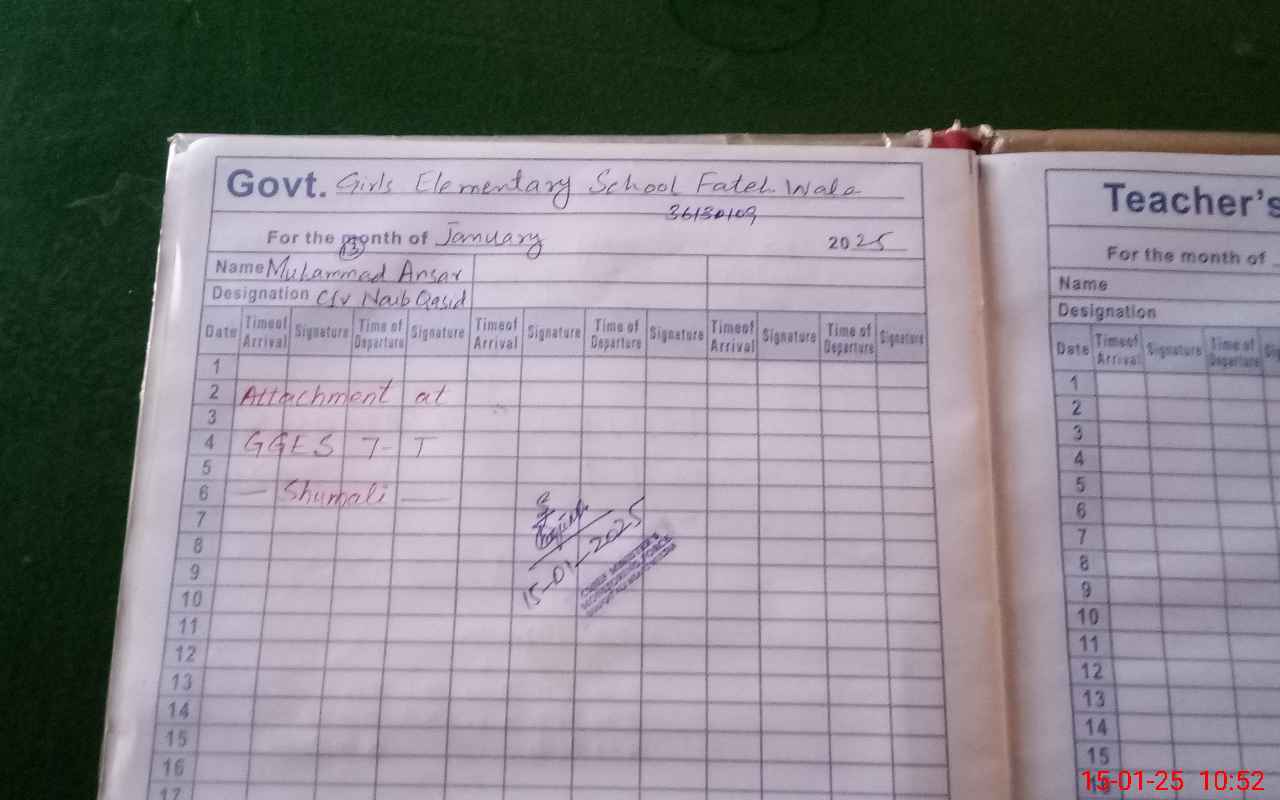 Govt. Girls Elementary School Fateh Wala
36130109
For the month of January 2025
13
Name Muhammad Ansar
Designation C/V Naib Qasid
Date Time of Arrival Signature Time of Departure Signature Time of Arrival Signature Time of Departure Signature Time of Arrival Signature Time of Departure Signature
1
2 Attachment at
3
4 GGES 7-T
5
6 — Shumali —
7
8
9
10
11
12
13
14
15
16
17
15-01-2025
CHIEF MINISTER'S
MONITORING FORCE
Teacher's
For the month of
Name
Designation
Date Time of Arrival Signature Time of Departure
1
2
3
4
5
6
7
8
9
10
11
12
13
14
15
16
15-01-25 10:52